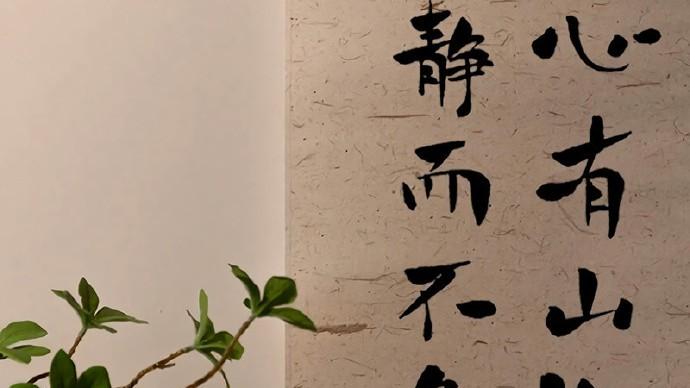 心有山
静而不